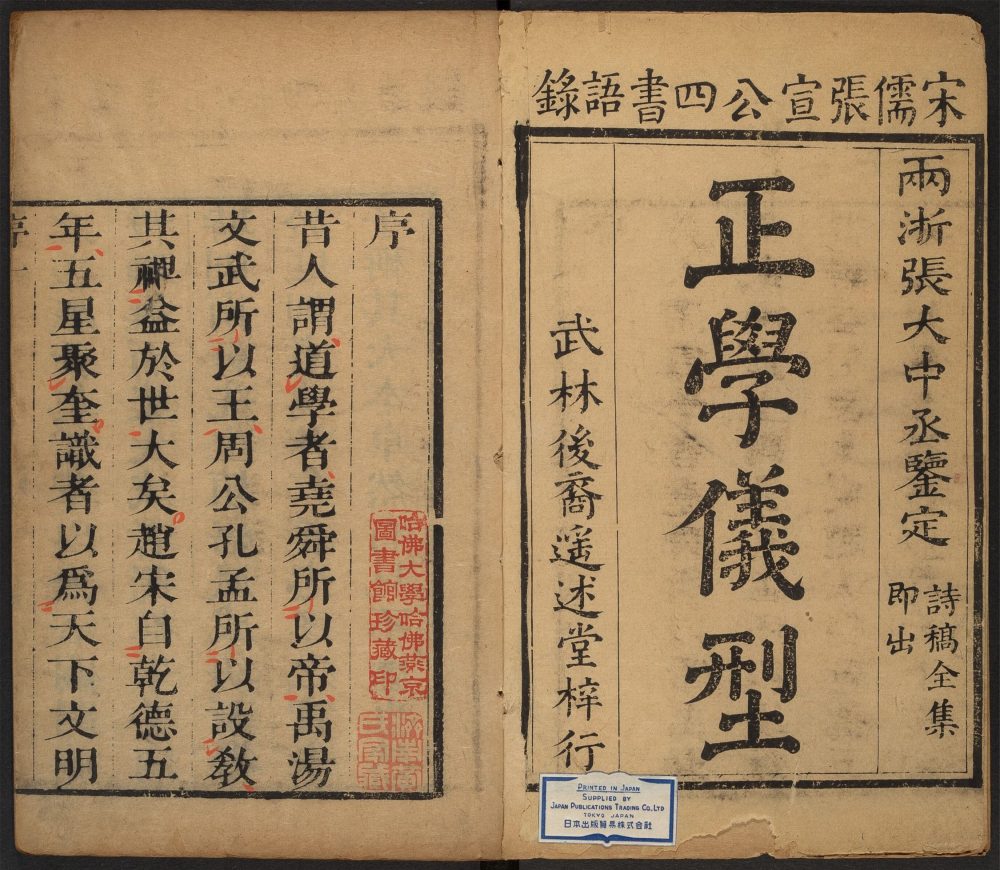 宋儒張宣公四書語錄
兩浙張大中丞鑒定
詩稿全集
即出
正學儀型
武林後裔遥述堂梓行
PRINTED IN JAPAN
SUPPLIED BY
JAPAN PUBLICATIONS TRADING CO., LTD
TOKYO JAPAN
日本出版貿易株式会社
序
昔人謂道學者堯舜所以帝禹湯
文武所以王周公孔孟所以設敎
其裨益於世大矣趙宋自乾德五
年五星聚奎識者以爲天下文明
序一
哈佛大學哈佛燕京
圖書館珍藏印